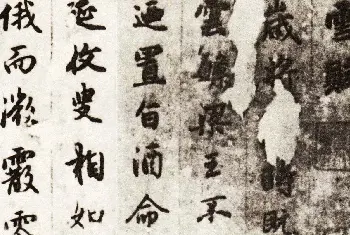 雪賦
歲將時既
雲繁梁王不
迺置旨酒命
延枚叟相如
俄而微霰零